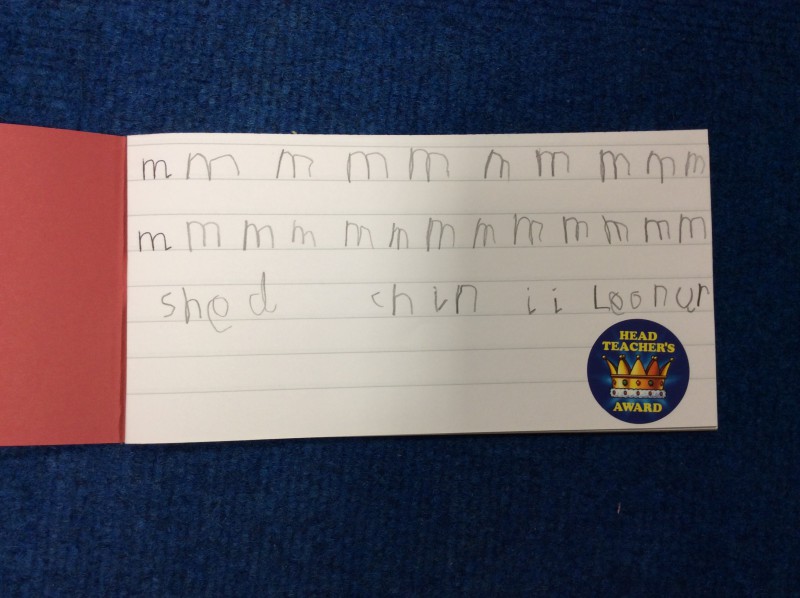 m m m m m m m m m m
m m m m m m m m m m m m m
shed chin i i
HEAD
TEACHER'S
AWARD